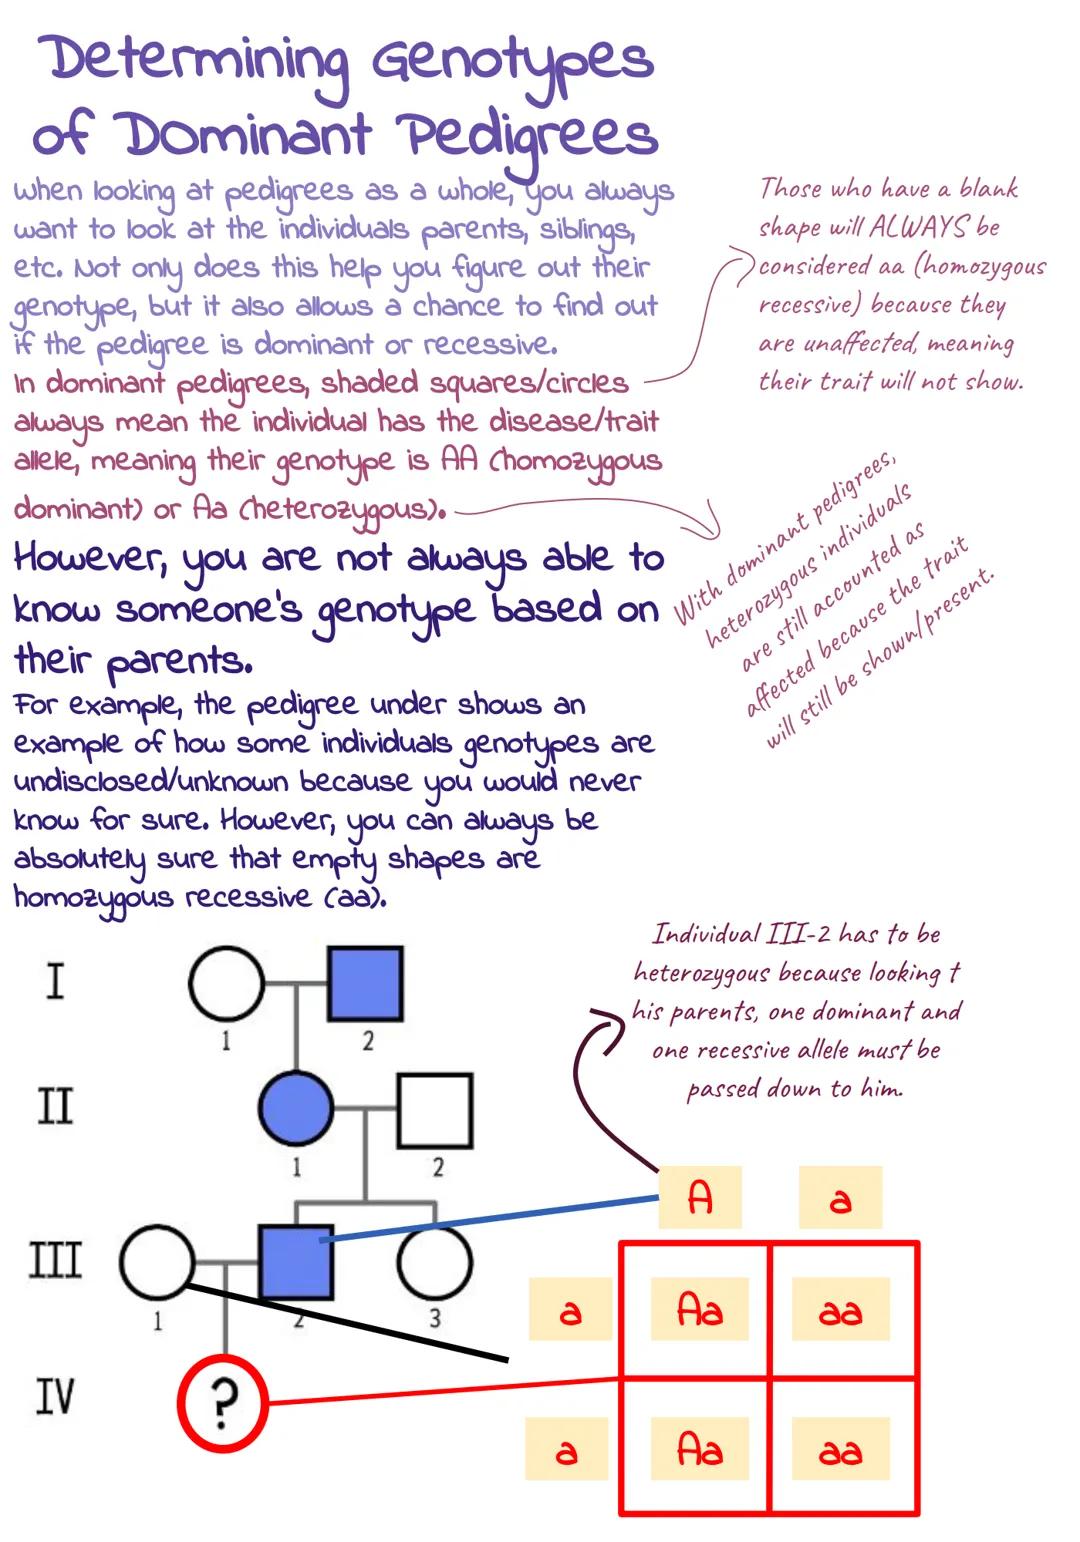 Determining Genotypes
of Dominant Pedigrees
When looking at pedigrees as a whole, you always
want to look at the individuals parents, siblings,
etc. Not only does this help you figure out their
genotype, but it also allows a chance to find out
if the pedigree is dominant or recessive.
In dominant pedigrees, shaded squares/circles
always mean the individual has the disease/trait
allele, meaning their genotype is AA (homozygous
dominant) or Aa (heterozygous).
Those who have a blank
shape will ALWAYS be
considered aa (homozygous
recessive) because they
are unaffected, meaning
their trait will not show.
With dominant pedigrees,
heterozygous individuals
are still accounted as
affected because the trait
will still be shown/present.
However, you are not always able to
know someone's genotype based on
their parents.
For example, the pedigree under shows an
example of how some individuals genotypes are
undisclosed/unknown because you would never
know for sure. However, you can always be
absolutely sure that empty shapes are
homozygous recessive (aa).
Individual III-2 has to be
heterozygous because looking t
his parents, one dominant and
one recessive allele must be
passed down to him.
I
1 2
II
1 2
III
1 2 3
IV
?
A a
a Aa aa
a Aa aa